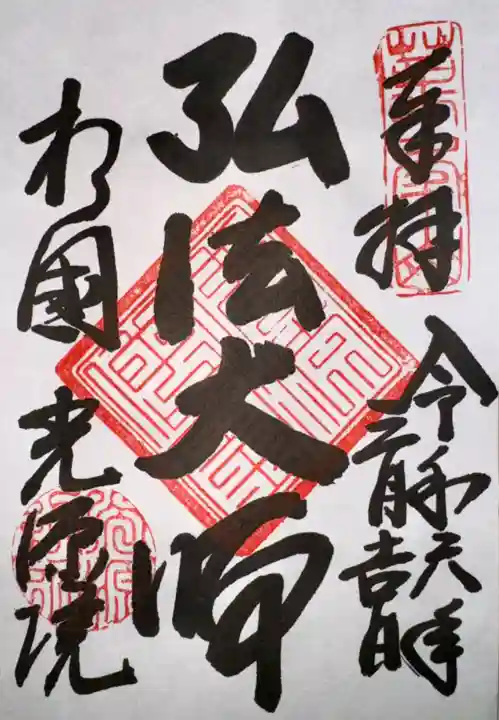 奉拝
令和年
二月吉日
弘法大師
相國 光源院